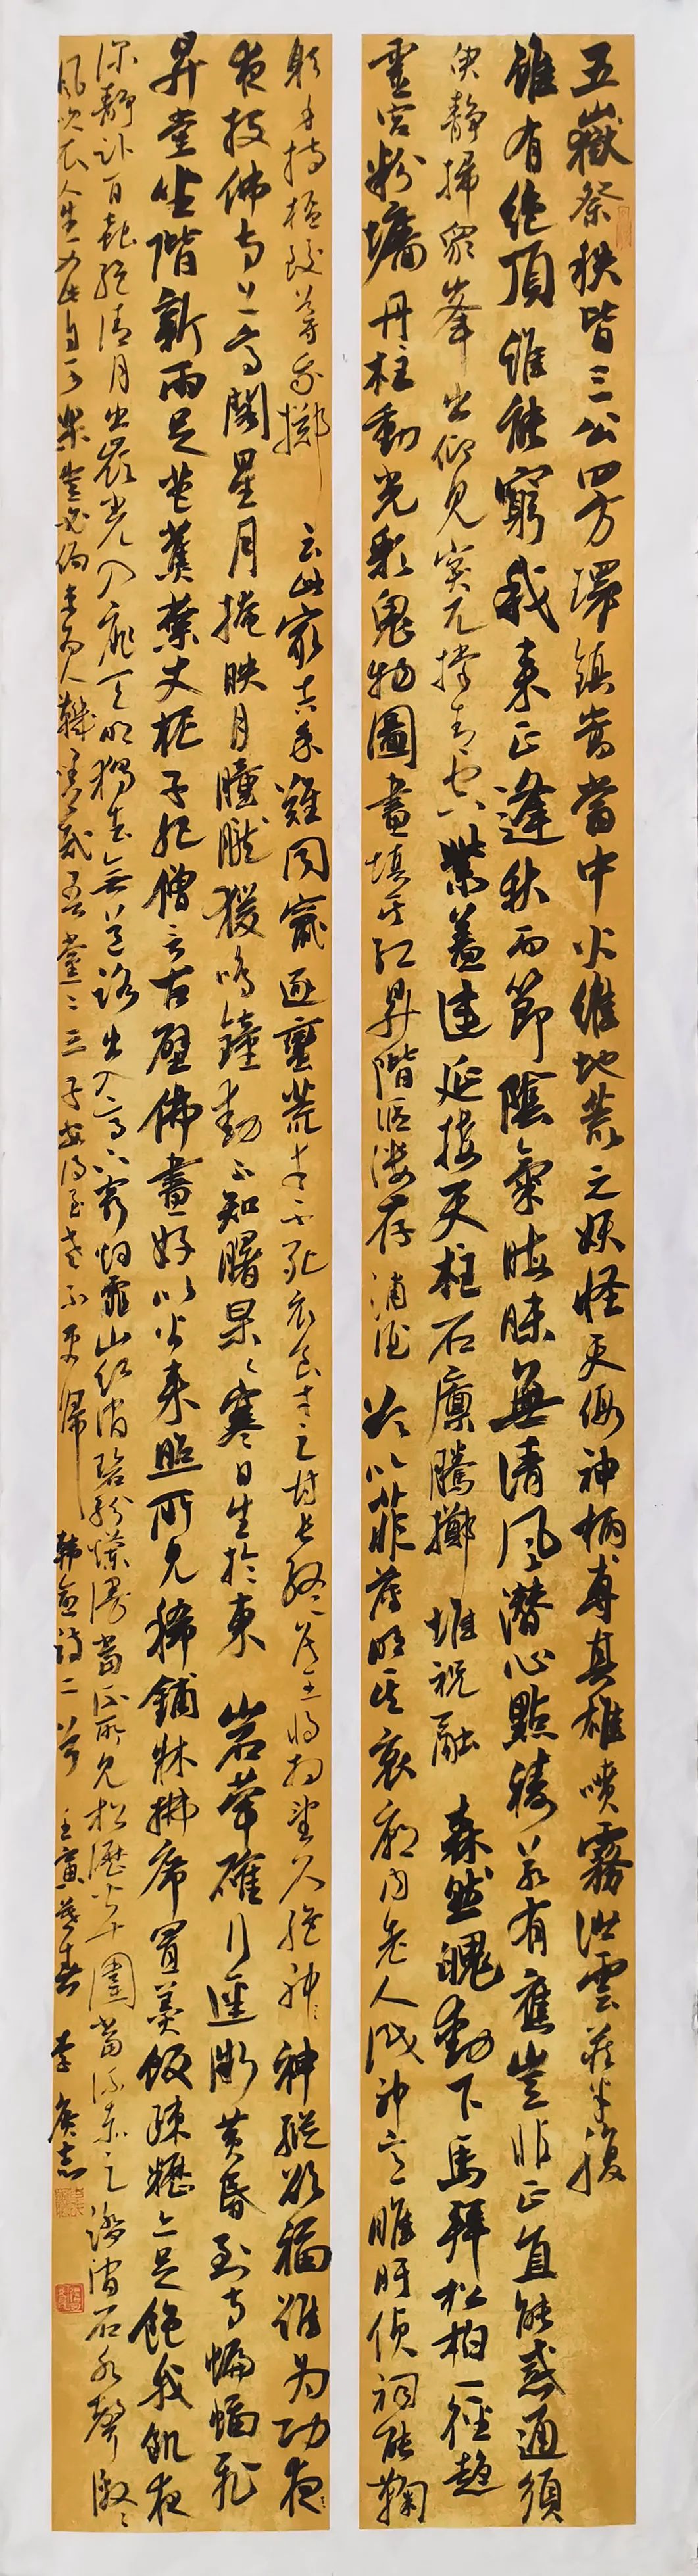 五嶽祭秩皆三公四方環鎮嵩當中火維地荒足妖怪天假神柄專其雄噴霧泄雲藏半腹
雖有絕頂誰能窮我來正逢秋雨節陰氣晦昧無清風潛心默禱若有應豈非正直能感通須
臾靜掃眾峰出仰見突兀撐青空紫蓋連延接天柱石廩騰擲堆祝融森然魄動下馬拜松柏一徑趨
靈宮粉墻丹柱動光彩鬼物圖畫填青紅昇階傴僂存浦酒欲以菲薄明其衷廟內老人識神意睢盱偵伺能鞠
躬手持杯珓導我擲云此最吉餘難同竄逐蠻荒幸不死衣食才足甘長終侯王將相望久絕神神縱欲福難為功夜
夜投佛寺上高閣星月掩映月朣朧猨鳴鐘動不知曙杲杲寒日生於東山石犖确行徑微黃昏到寺蝙蝠飛
昇堂坐階新雨足芭蕉葉大梔子肥僧言古壁佛畫好以火來照所見稀鋪牀拂席置羹飯疎糲亦足飽我飢夜
深靜臥百蟲絕清月出嶺光入扉天明獨去無道路出入高下窮煙霏山紅澗碧紛爛漫時見松櫪皆十圍當流赤足蹋澗石水聲激激
風吹衣人生如此自可樂豈必侷束為人鞿嗟哉吾黨二三子安得至老不更歸 韓愈詩二首 壬寅暮春 李廣志